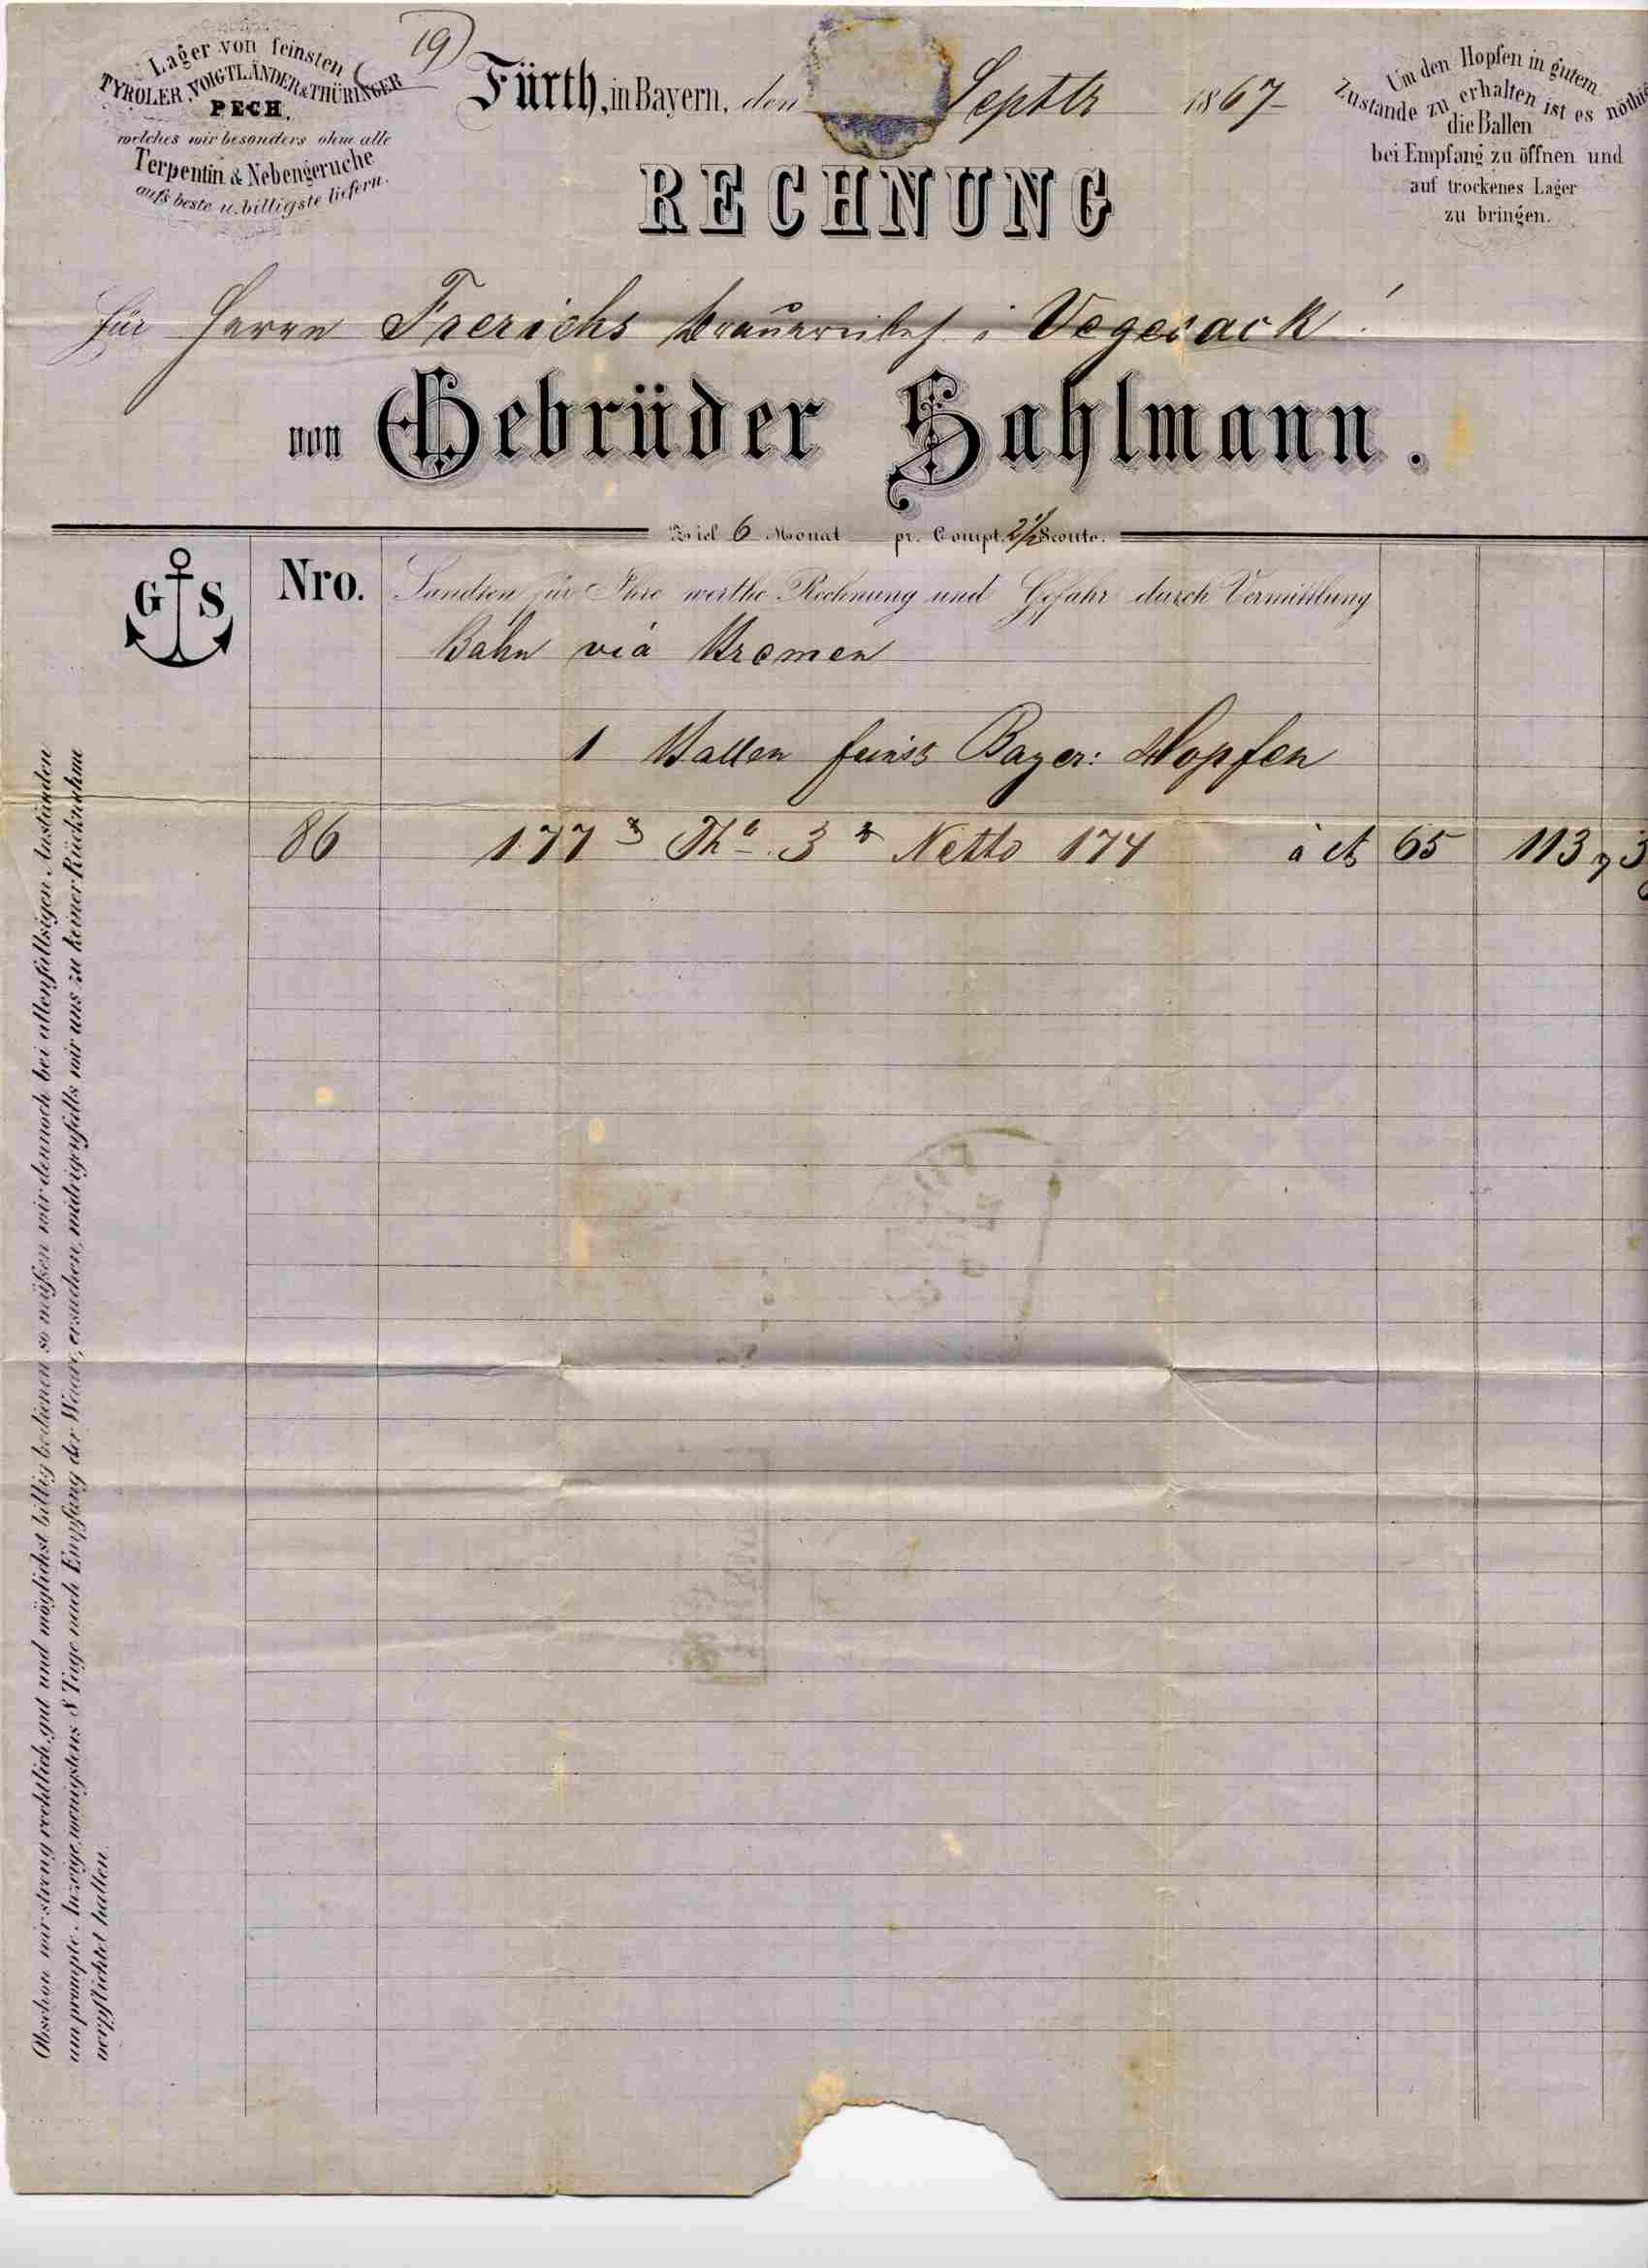 Lager von feinsten
TYROLER, VOIGTLÄNDER & THÜRINGER
PECH,
welches wir besonders ohne alle
Terpentin & Nebengeruche
aufs beste u. billigste liefern.
19)
Fürth, in Bayern, den Septbr 1867
Um den Hopfen in gutem
Zustande zu erhalten ist es nöthig
die Ballen
bei Empfang zu öffnen und
auf trockenes Lager
zu bringen.
RECHNUNG
Für Herrn Frerichs Brauereibes. i Vegesack !
von Gebrüder Sahlmann.
Ziel 6 Monat pr. Compt. 2 1/2 Sconto.
G S
Nro. Sandten für Ihre werthe Rechnung und Gefahr durch Vermittlung
Bahn via Bremen
1 Ballen feinst Bayer: Hopfen
86 177 Tha 3 Netto 174 à 65 113 3
Obschon wir streng rechtlich, gut und möglichst billig bedienen so müßen wir dennoch bei allenfallsigen Anständen
um prompte Anzeige, wenigstens 8 Tage nach Empfang der Waare, ersuchen, widrigenfalls wir uns zu keiner Rücknahme
verpflichtet halten.